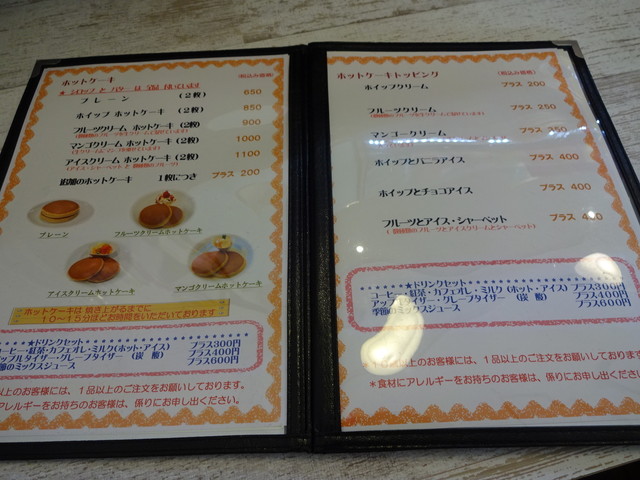 ホットケーキ (税込み価格)
★ シロップ と バター は 全品 付いています
プレーン (2枚) 650
ホイップ ホットケーキ (2枚) 850
フルーツクリーム ホットケーキ (2枚) 900
マンゴクリーム ホットケーキ (2枚) 1000
アイスクリーム ホットケーキ (2枚) 1100
追加のホットケーキ 1枚につき プラス 200
プレーン
フルーツクリームホットケーキ
アイスクリームホットケーキ
マンゴクリームホットケーキ
ホットケーキは 焼き上がるまでに
10～15分ほどお時間をいただいております
★ドリンクセット
ーヒー・紅茶・カフェオレ・ミルク(ホット・アイス) プラス300円
ップルタイザー・グレープタイザー (炭 酸) プラス400円
節のミックスジュース プラス600円
以上のお客様には、1品以上のご注文をお願いしております。
アレルギーをお持ちのお客様は、係りにお申し出ください。
ホットケーキトッピング (税込み価格)
ホイップクリーム プラス 200
フルーツクリーム プラス 250
マンゴークリーム プラス 350
ホイップとバニラアイス プラス 400
ホイップとチョコアイス プラス 400
フルーツとアイス・シャーベット プラス
★ドリンクセット
コーヒー・紅茶・カフェオレ・ミルク (ホット・アイス) プラス300円
アップルタイザー・グレープタイザー (炭 酸) プラス400円
季節のミックスジュース プラス600円
以上のお客様には、1品以上のご注文をお願いしております。
＊食材にアレルギーをお持ちのお客様は、係りにお申し出ください。